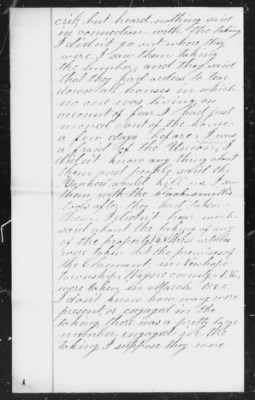 crib, but heard nothing said
in connection with the taking
I did n't go out where they
were, I saw them taking
the lumber, and they said
that they had orders to tear
down all houses in which
no one was living on
account of fear I had just
moved out of the house
a few days before. I was
afraid of the Union, I
did n't know any thing about
them, and people said the
Yankees would kill us I saw
them with the blacksmith
tools after they had taken
them, I did n't hear much
said about the taking of any
of the property. These articles
were taken at the premises of
the claimant in Newhope
township Wayne county N.C.,
were taken in March 1865
I don't know how many were
present or engaged in the
taking, there was a pretty large
number engaged in the
taking I suppose they were